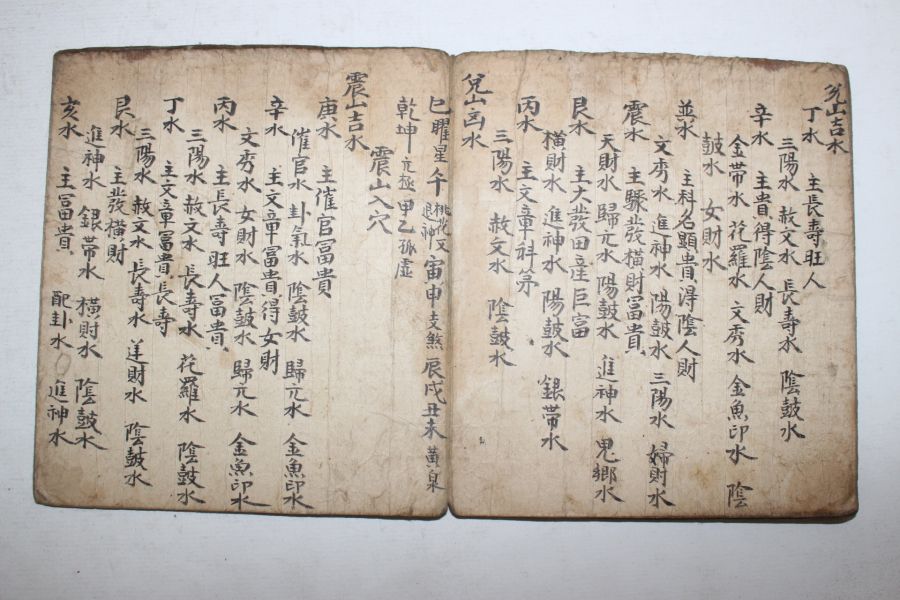 兌山吉水
丁水 主長壽旺人
三陽水 赦文水 長壽水 陰鼓水
辛水 主貴得陰人財
金帶水 花羅水 文秀水 金魚印水 陰
鼓水 女財水
水 主科名顯貴得陰人財
文秀水 進神水 陽鼓水 三陽水 婦財水
震水 主驟發橫財冨貴
天財水 歸元水 陽鼓水 進神水 鬼鄉水
艮水 主大發田産巨富
橫財水 進神水 陽鼓水 銀帶水
丙水 主文章科第
三陽水 赦文水 陰鼓水
兌山凶水
巳曜星 午桃花又退神 寅申 支煞 辰戌丑未 黃泉
乾坤 亢極 甲乙 孤虛
震山入穴
震山吉水
庚水 主催官冨貴
催官水 卦氣水 陰鼓水 歸元水 金魚印水
辛水 主文章冨貴得女財
文秀水 女財水 陰鼓水 歸元水 金魚印水
丙水 主長壽旺人冨貴
三陽水 赦文水 長壽水 花羅水 陰鼓水
丁水 主文章冨貴長壽
三陽水 赦文水 長壽水 財水 陰鼓水
艮水 主發橫財
進神水 銀帶水 橫財水 陰鼓水
亥水 主冨貴 配卦水 進神水